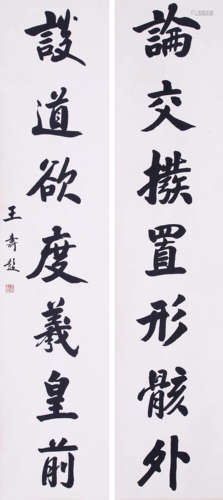 論交撥置形骸外
談道欲度羲皇前
王壽彭